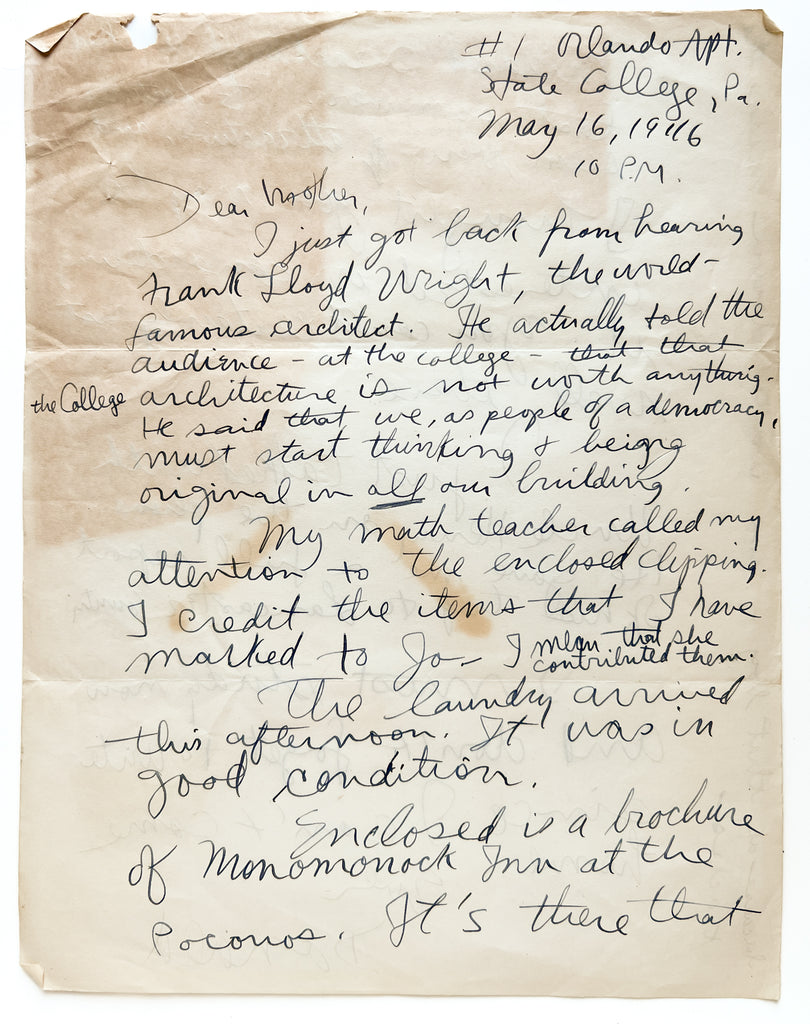 #1 Orlando Apt.
State College, Pa.
May 16, 1946
10 P.M.
Dear Mother,
I just got back from hearing
Frank Lloyd Wright, the world-
famous architect. He actually told the
audience - at the college - that that
the College architecture is not worth anything.
He said that we, as people of a democracy,
must start thinking & being
original in all our building.
My math teacher called my
attention to the enclosed clipping.
I credit the items that I have
marked to Jo - I mean that she
contributed them.
The laundry arrived
this afternoon. It was in
good condition.
Enclosed is a brochure
of Monomonock Inn at the
Poconos. It's there that